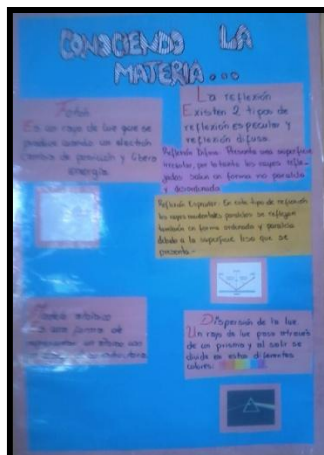 CONOCIENDO LA
MATERIA...
Fotón
Es un rayo de luz que se
produce cuando un electrón
cambia de posición y libera
energía
La reflexión
Existen 2 tipos de
reflexión especular y
reflexión difusa.
Reflexión Difusa: Presenta una superficie
irregular, por lo tanto los rayos refle-
jados salen en forma no paralela
y desordenada
Reflexión Especular: En este tipo de reflexión
los rayos incidentales paralelos se reflejan
también en forma ordenada y paralela
debido a la superficie lisa que se
presenta.-
Es una forma de
representar un átomo con
Dispersión de la luz
Un rayo de luz pasa através
de un prisma y al salir se
divide en estos diferentes
colores: